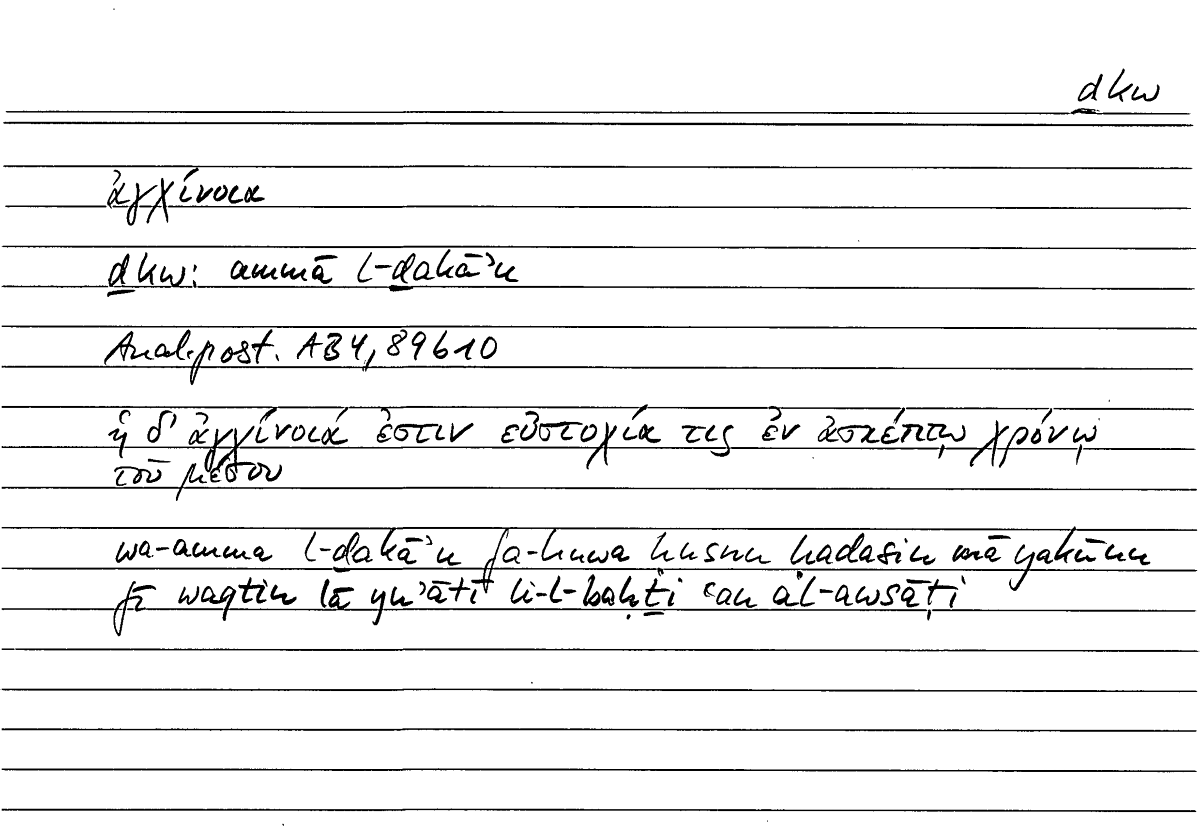 ḏkw
ἀγχίνοια
ḏkw: ammā l-ḏakā’u
Anal. post. AB4, 89b10
ἡ δ’ ἀγχίνοιά ἐστιν εὐστοχία τις ἐν ἀσκέπτῳ χρόνῳ
τοῦ μέσου
wa-amma l-ḏakā’u fa-huwa husnu hadasin mā yakūnu
fī waqtin lā yu’ātī li-l-baḥṯi ʿan al-awsāṭi